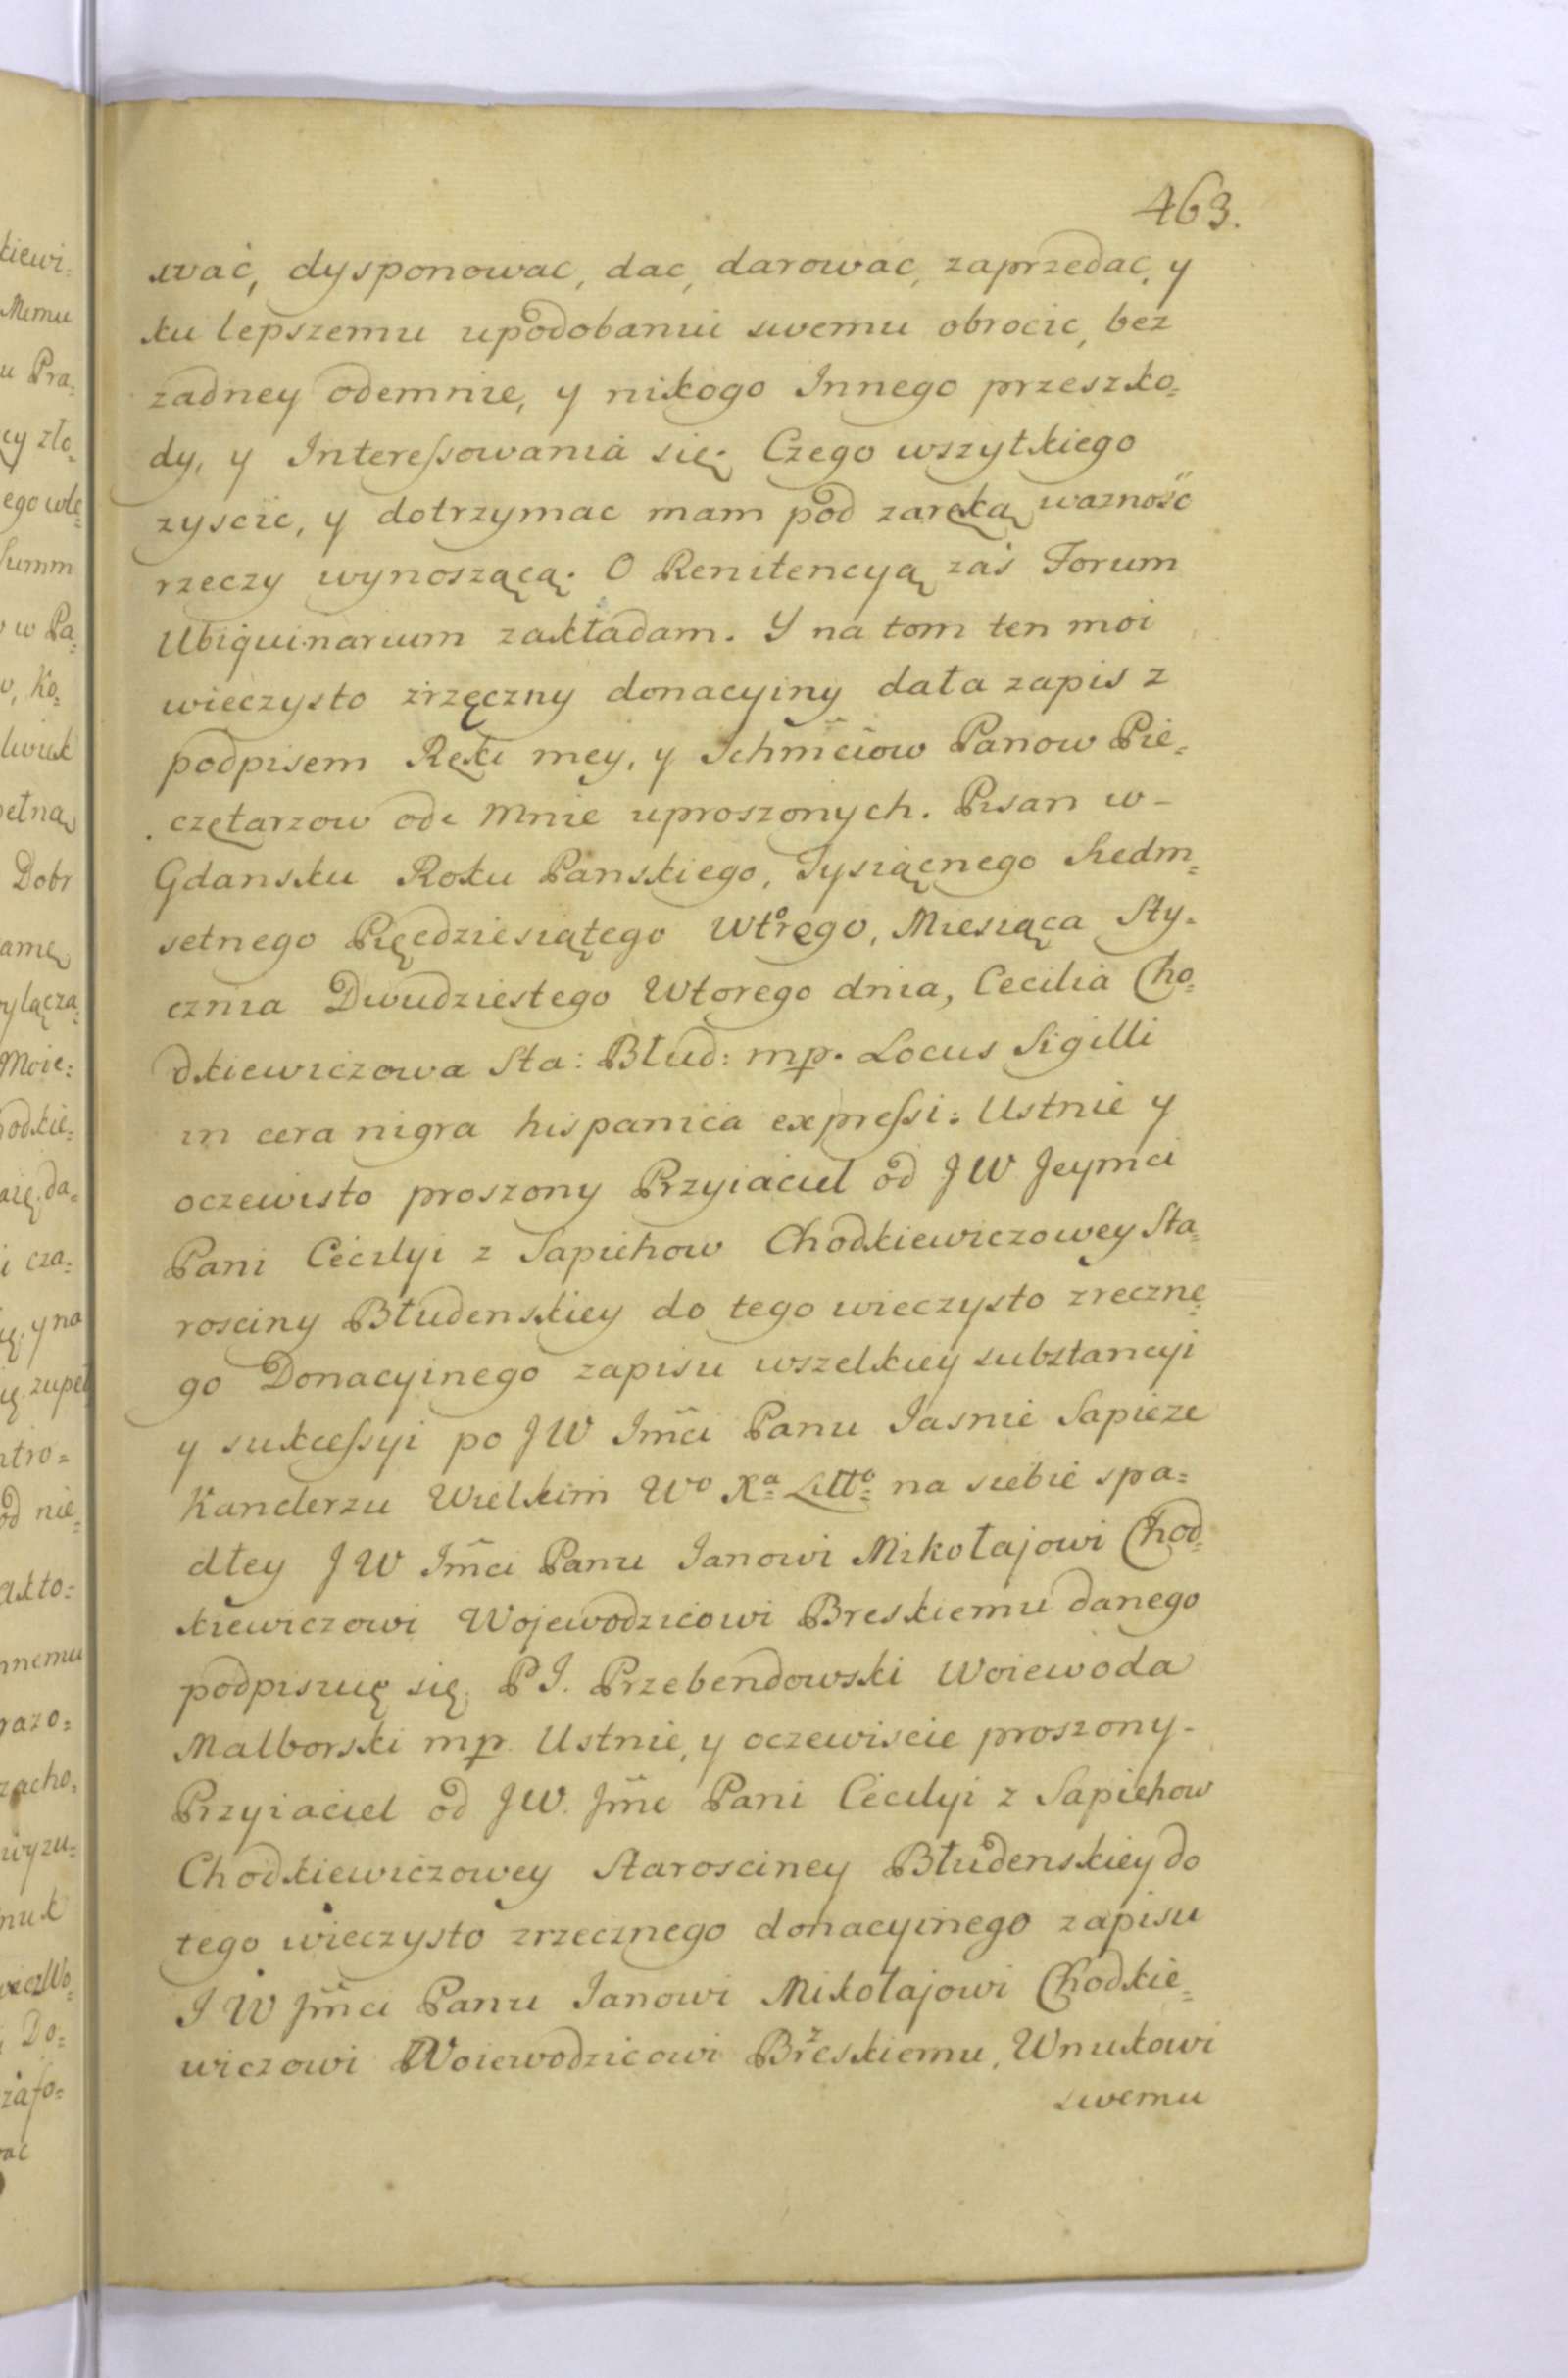 463.
wać, dysponować, dac, darować, zaprzedać, y
ku lepszemu upodobaniu swemu obrocic, bez
zadney odemnie, y nikogo Innego przeszko=
dy, y Interessowania się. Czego wszytkiego
zyscić, y dotrzymac mam pod zaręką waznośc
rzeczy wynoszącą. O Renitencyą zaś Forum
Ubiquinarium zakładam. Y na tom ten moi
wieczysto zrzęczny donacyiny data zapis z
podpisem Ręki mey, y Ichmciow Panow Pie=
czętarzow ode Mnie uproszonych. Pisan w-
Gdansku Roku Panskiego, Tysiącnego Siedm=
setnego Pięcdziesiątego Wtorego, Miesiąca Sty=
cznia Dwudziestego Wtorego dnia, Cecilia Cho=
dkiewiczowa Sta: Błud: mp. Locus Sigilli
in cera nigra hispanica expressi: Ustnie y
oczewisto proszony Przyiaciel od JW Jeymci
Pani Cecilyi z Sapiehow Chodkiewiczowey Sta=
rosciny Błudenskiey do tego wieczysto zreczne=
go Donacyinego zapisu wszelkiey substancyi
y sukcessyi po JW Imci Panu Iasnie Sapieze
Kanclerzu Wielkim Wo Xa Litto na siebie spa=
dłey JW Imci Panu Ianowi Mikołajowi Chod=
kiewiczowi Wojewodzicowi Breskiemu danego
podpisuię się. PJ. Przebendowski Woiewoda
Malborski mp. Ustnie, y oczewiscie proszony-
Przyiaciel od JW. Jme Pani Cecilyi z Sapiehow
Chodkiewiczowey Starosciney Błudenskiey do
tego wieczysto zrzecznego donacyinego zapisu
JW Jmci Panu Ianowi Mikołajowi Chodkie=
wiczowi Woiewodzicowi Brzeskiemu, Wnukowi
swemu